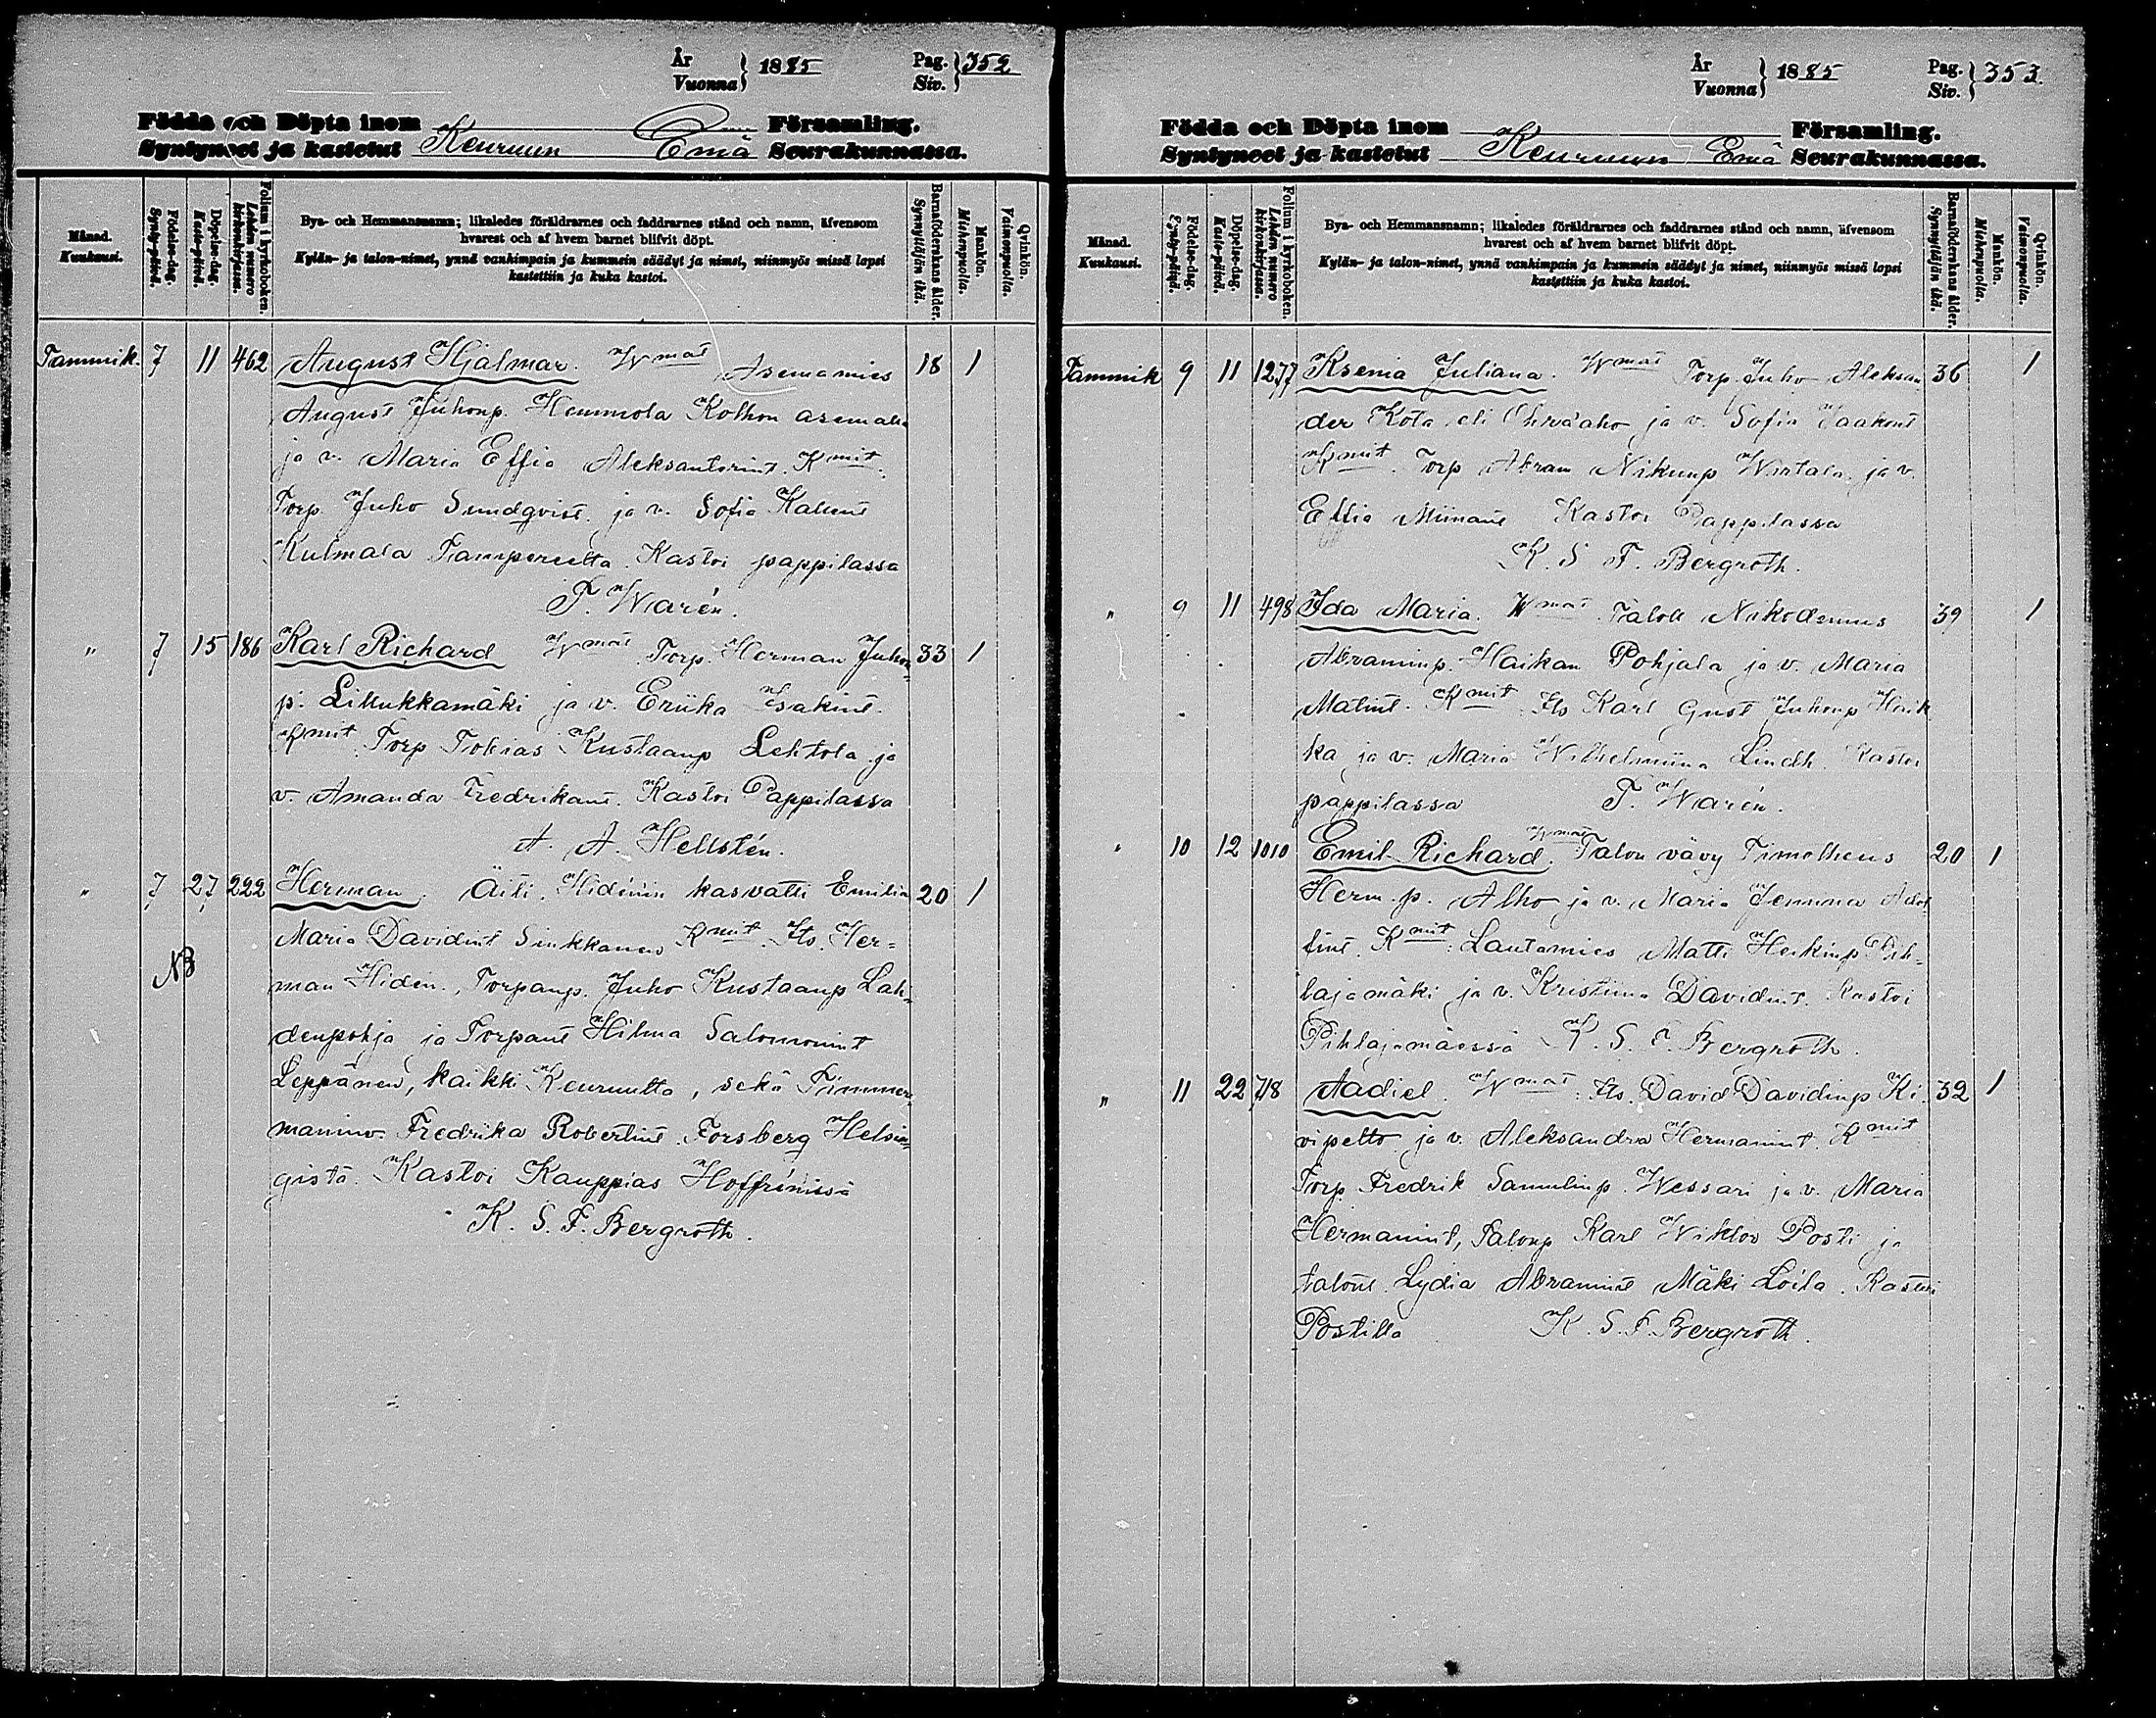 År Vuonna } 1885 Pag. Siv. } 352
Födda och Döpta inom Församling.
Syntyneet ja kastetut Keuruun Emä Seurakunnassa.
Månad. Kuukausi.
Födelse-dag. Synty-päivä.
Döpelse-dag. Kaste-päivä.
Folium i kyrkoboken. Lehden numero kirkonkirjassa.
Bya- och Hemmansnamn; likaledes föräldrarnes och faddrarnes stånd och namn, äfvensom
hvarest och af hvem barnet blifvit döpt.
Kylän- ja talon-nimet, ynnä vanhimpain ja kummein säädyt ja nimet, niinmyös missä lapsi
kastettiin ja kuka kastoi.
Barnaföderskans ålder. Synnyttäjän ikä.
Mankön. Miehenpuolia.
Qvinkön. Vaimonpuolia.
Tammik. 7 11 462 August Hjalmar. Wmat Asemamies 18 1
August Juhonp. Hemmola Kolhon asemalta
ja v. Maria Effia Aleksanterint. Kmit.
Torp. Juho Sundqvist ja v. Sofia Kallent
Kulmala Tampereelta. Kastoi pappilassa
T. Warén.
" 7 15 186 Karl Richard Wmat Torp. Herman Juhon= 33 1
p. Liukkamäki ja v. Eriika Isakint.
Kmit Torp Tobias Kustaanp Lehtola ja
v. Amanda Fredrikant. Kastoi Pappilassa
A. A. Hellstén.
" 7 27 222 Herman. Äiti. Hidénin kasvatti Emilia 20 1
Maria Davidint Sinkkanen Kmit. Its. Her=
NB
man Hiden., Torpanp. Juho Kustaanp Lah=
denpohja ja Torpant Hilma Salomonint
Leppänen, kaikki Keuruulta, sekä Timmer=
maninv. Fredrika Robertint Forsberg Helsin=
gistä. Kastoi Kauppias Hoffrénissä
K. S. F. Bergroth.
År Vuonna } 1885 Pag. Siv. } 353
Födda och Döpta inom Församling.
Syntyneet ja kastetut Keuruun Emä Seurakunnassa.
Månad. Kuukausi.
Födelse-dag. Synty-päivä.
Döpelse-dag. Kaste-päivä.
Folium i kyrkoboken. Lehden numero kirkonkirjassa.
Bya- och Hemmansnamn; likaledes föräldrarnes och faddrarnes stånd och namn, äfvensom
hvarest och af hvem barnet blifvit döpt.
Kylän- ja talon-nimet, ynnä vanhimpain ja kummein säädyt ja nimet, niinmyös missä lapsi
kastettiin ja kuka kastoi.
Barnaföderskans ålder. Synnyttäjän ikä.
Mankön. Miehenpuolia.
Qvinkön. Vaimonpuolia.
Tammik 9 11 1277 Ksenia Juliana. Wmat Torp. Juho Aleksan 36 1
der Kota eli ja v. Sofia Jaakont
Kmit. Torp Abram Nikunp Wirtala ja v.
Effia Miinant Kastoi Pappilassa
K. S. F. Bergroth.
" 9 11 498 Ida Maria. Wmat Taloll Nikodemus 39 1
Abraminp. Haikan Pohjala ja v. Maria
Matint. Kmit Its Karl Gust Juhonp Haik
ka ja v. Maria Wilhelmiina Lindh. Kastoi
pappilassa T. Warén.
" 10 12 1010 Emil Richard. Wmat Talon vävy Timotheus 20 1
Herm. p. Alho ja v. Maria Jemima
Kmit: Lautamies Matti Heikinp Pih=
lajamäki ja v. Kristiina Davidint. Kastoi
Pihlajamäessä K. S. F. Bergroth.
" 11 22 718 Aadiel. Wmat: Its. David Davidinp Ki 32 1
vipelto ja v. Aleksandra Hermanint. Kmit
Torp. Fredrik Samulinp. Wessari ja v. Maria
Hermanint, Talonp Karl Wiktor Posti ja
talont. Lydia Abramint Mäki Loila. Kastoi
Postilla K. S. F. Bergroth.